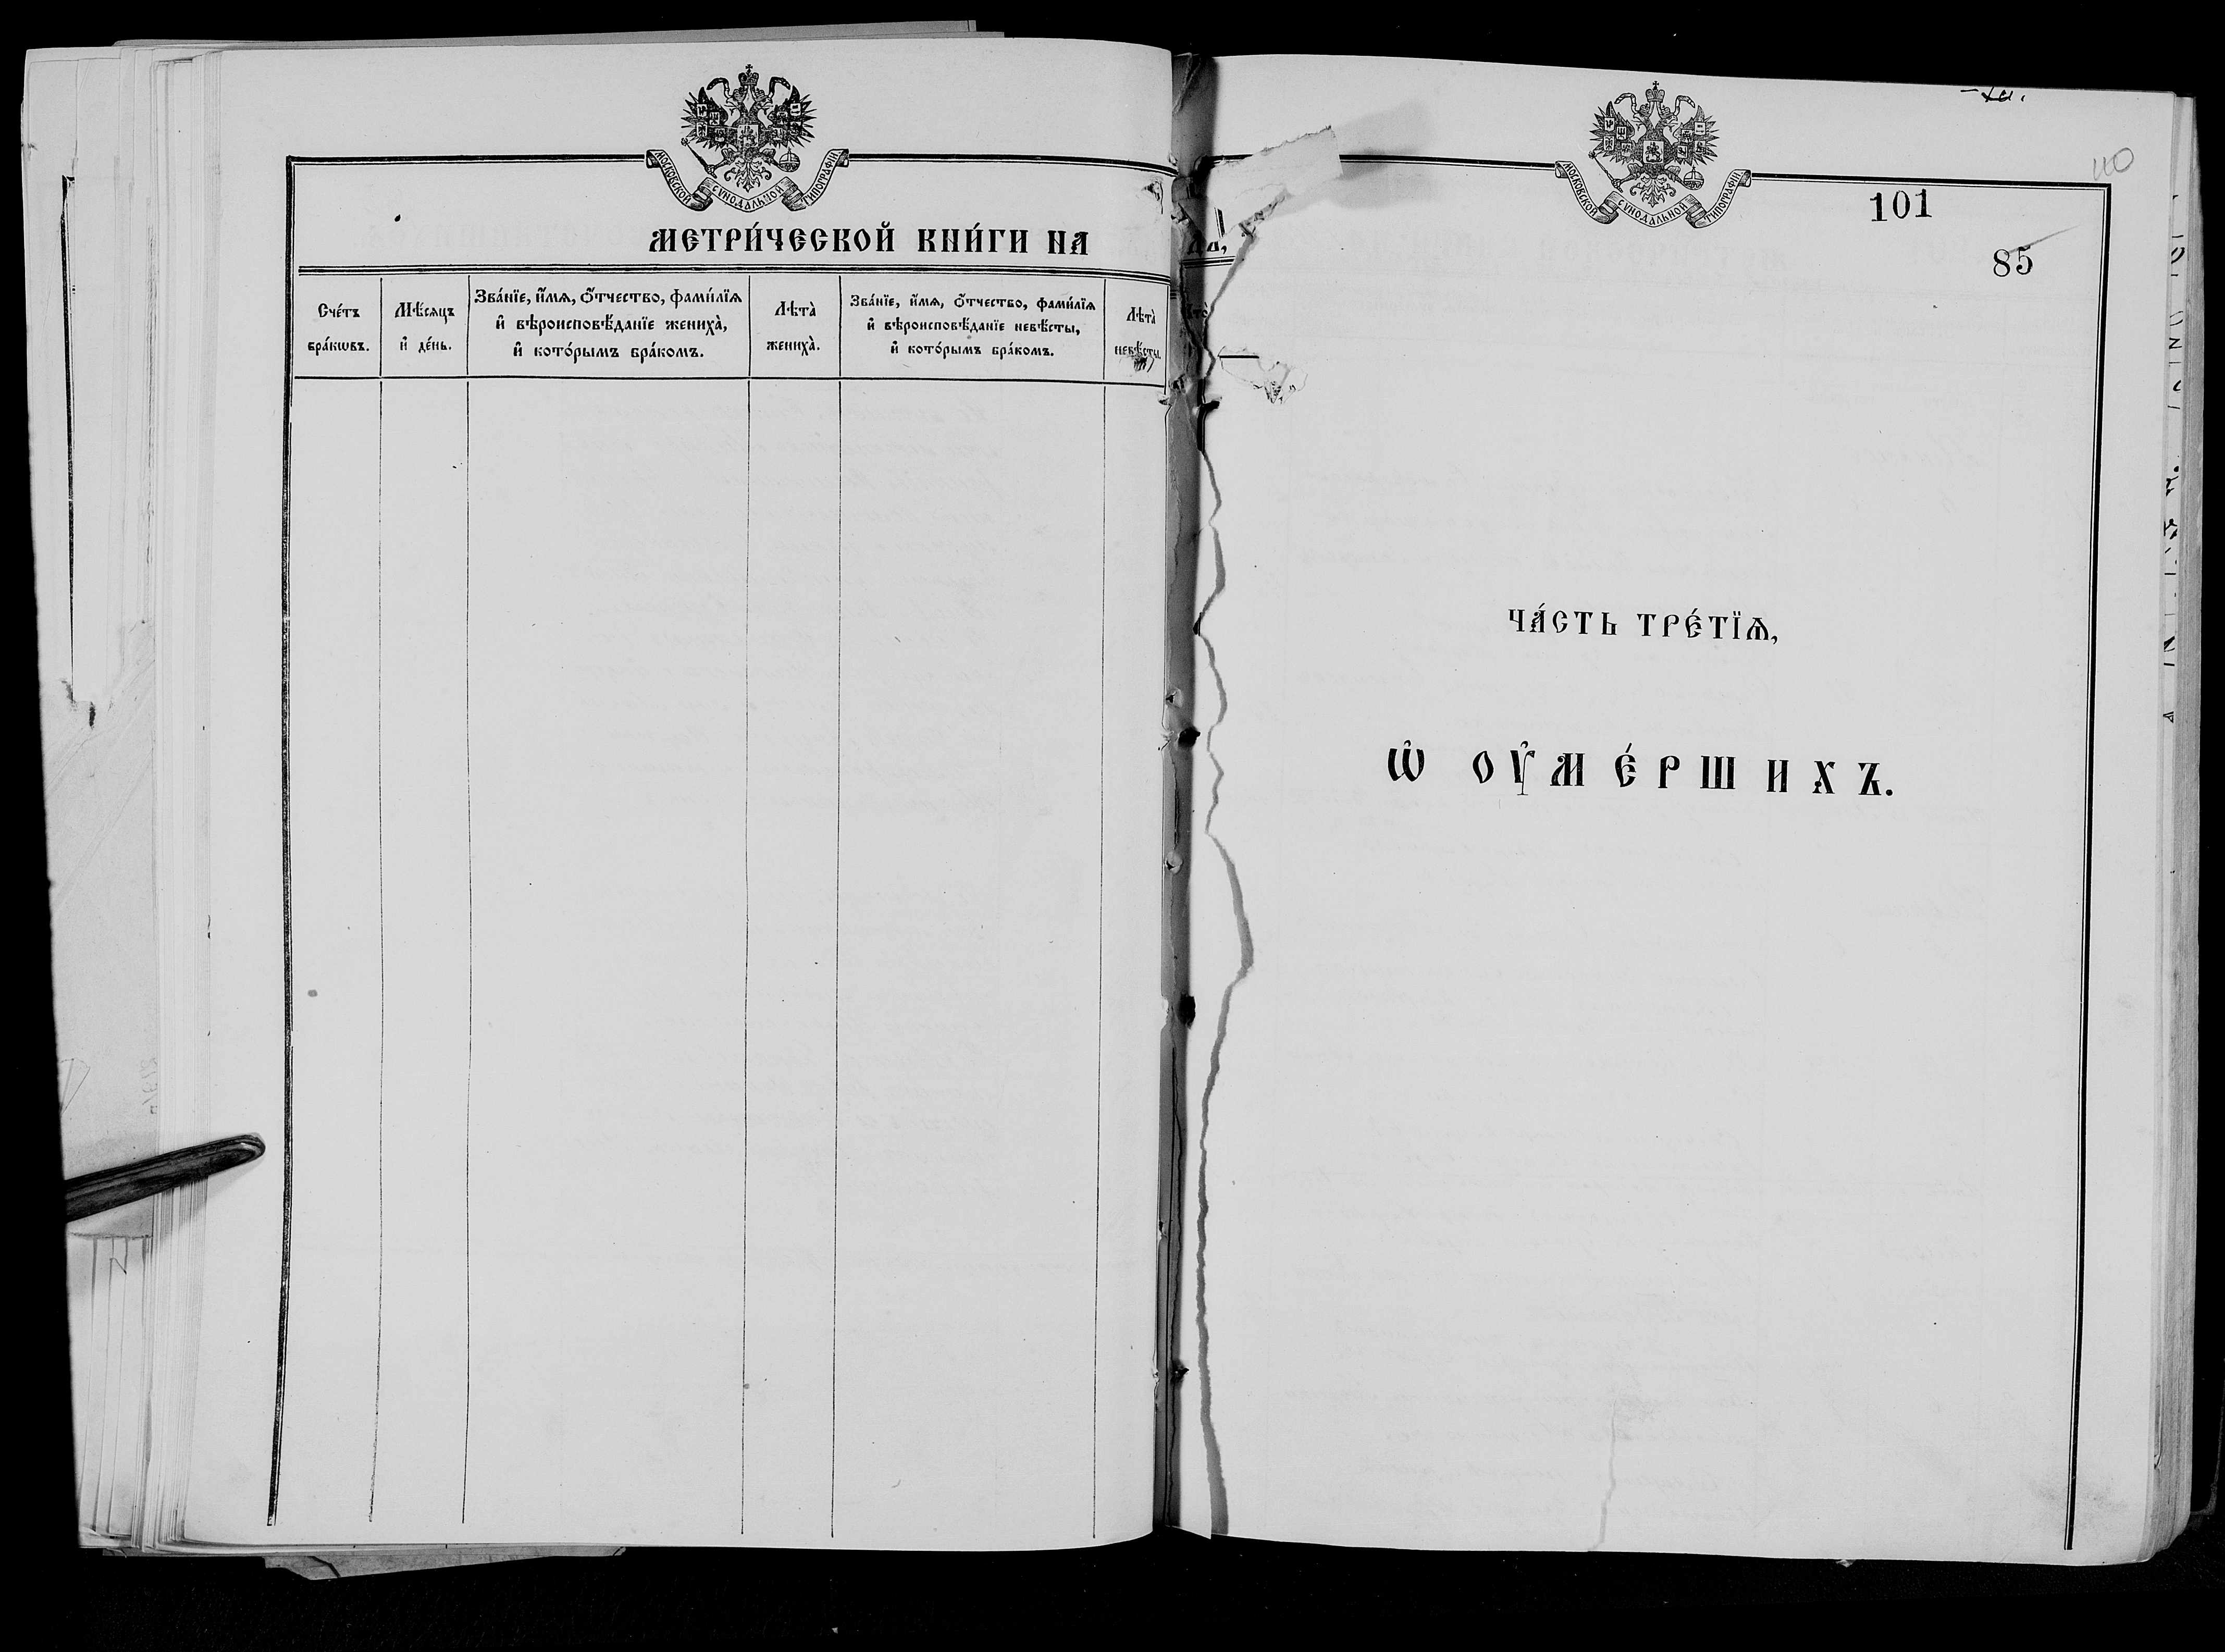 МОСКОВСКОЙ СѴНОДАЛЬНОЙ ТИПОГРАФІИ
МЕТРИ́ЧЕСКОЙ КНИ́ГИ НА
Сче́тъ бра́кѡвъ.
Мѣ́сяцъ и҆ де́нь.
Зва́нїе, и҆́мѧ, ѻ҆́тчество, фами́лїѧ
и҆ вѣроисповѣ́данїе жениха̀,
и҆ кото́рымъ бра́комъ.
Лѣта̀ жениха̀.
Зва́нїе, и҆́мѧ, ѻ҆́тчество, фами́лїѧ
и҆ вѣроисповѣ́данїе невѣ́сты,
и҆ кото́рымъ бра́комъ.
Лѣта̀ невѣ́сты.
МОСКОВСКОЙ СѴНОДАЛЬНОЙ ТИПОГРАФІИ
110
101
85
ЧА́СТЬ ТРЕ́ТЇѦ,
Ѡ҆ ОУ҆МЕ́РШИХЪ.